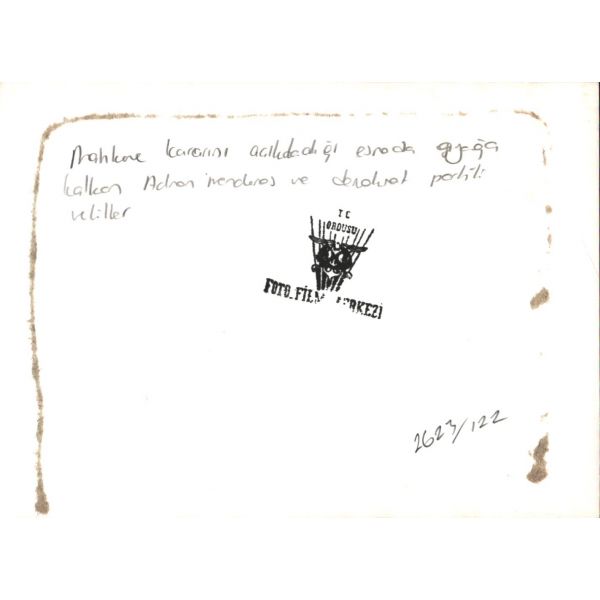 Mahkeme kararını açıkladığı esnada ayağa
kalkan Adnan Menderes ve demokrat partili
vekiller
T C
ORDUSU
FOTO FİLM MERKEZİ
2623/122